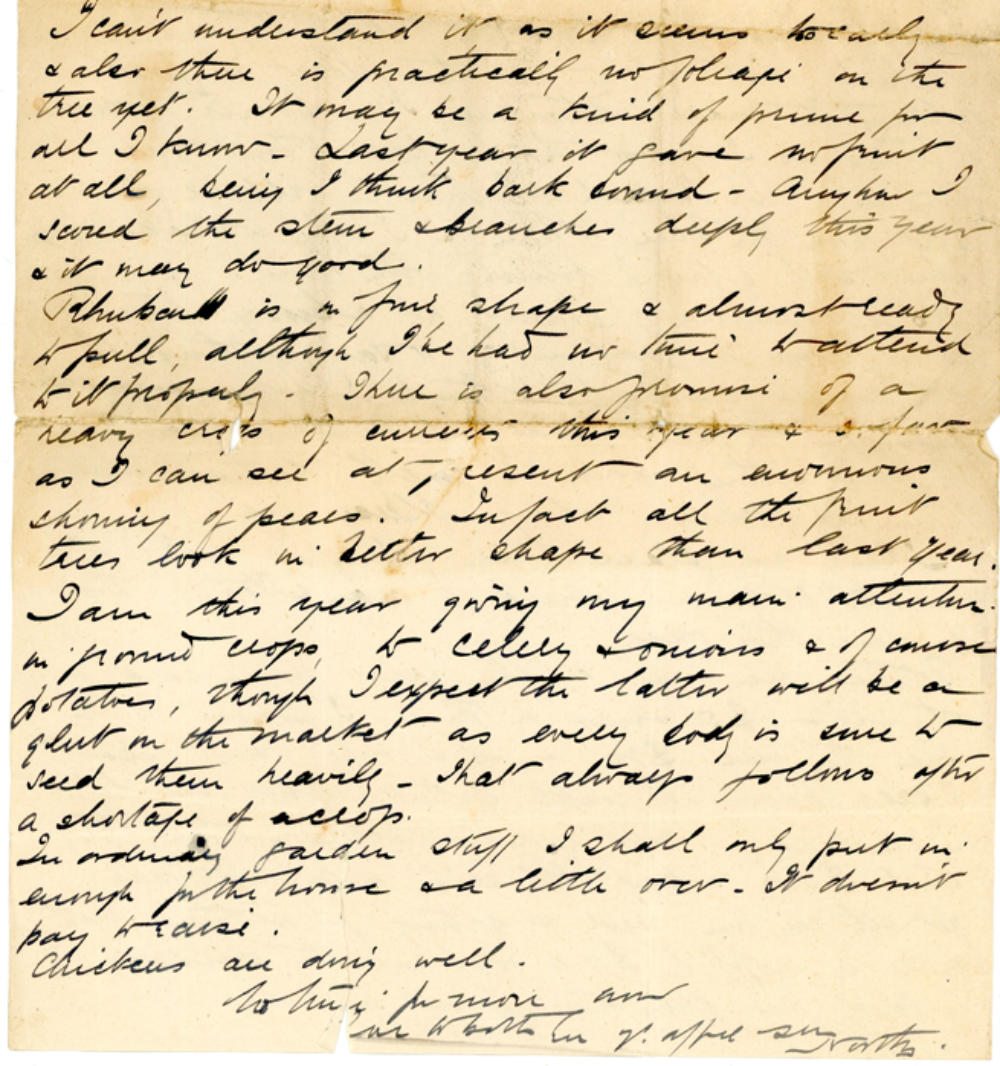 I can't understand it as it seems so early
& also there is practically no foliage on the
tree yet. It may be a kind of prune for
all I know - Last year it gave no fruit
at all, being I think bark bound - Anyhow I
scored the stem & branches deeply this year
& it may do good.
Rhubarb is in fine shape & almost ready
to pull, although I've had no time to attend
to it properly - There is also promise of a
heavy crop of currants this year & so far
as I can see at present an enormous
showing of pears. In fact all the fruit
trees look in better shape than last year.
I am this year giving my main attention
in ground crops, to celery & onions & of course
potatoes, though I expect the latter will be a
glut on the market as every body is sure to
seed them heavily - That always follows after
a shortage of a crop.
In ordinary garden stuff I shall only put in
enough for the house & a little over - It doesn't
pay to raise.
Chickens are doing well.
No time for more now
love to both from yr. affec son